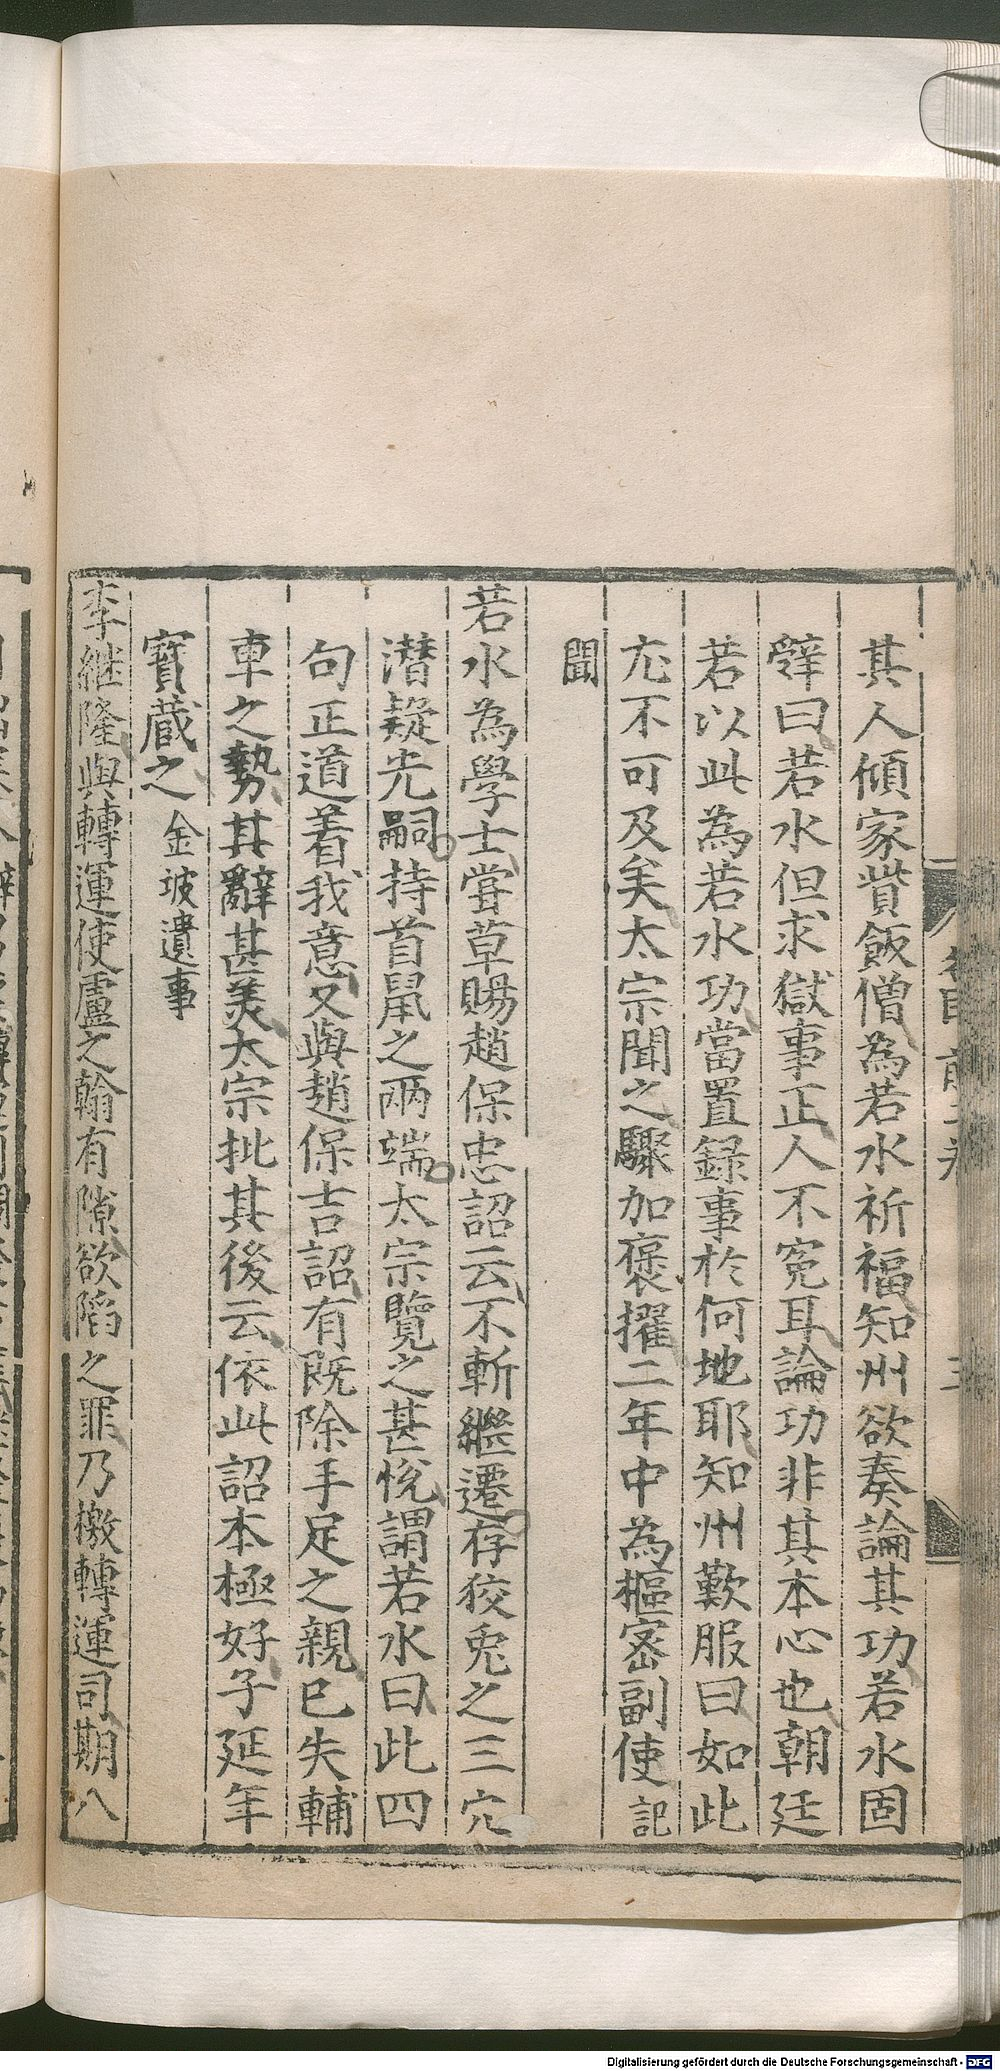 其人傾家貲飯僧為若水祈福知州欲奏論其功若水固
辤曰若水但求獄事正人不冤耳論功非其本心也朝廷
若以此為若水功當置録事於何地耶知州歎服曰如此
尤不可及矣太宗聞之驟加褒擢二年中為樞密副使記
聞
若水為學士嘗草賜趙保忠詔云不斬繼遷存狡兎之三穴
潛疑光嗣持首鼠之兩端太宗覽之甚悅謂若水曰此四
句正道着我意又與趙保吉詔有既除手足之親已失輔
車之勢其辭甚美太宗批其後云依此詔本極好子延年
寳藏之 金坡遺事
李継隆與轉運使盧之翰有隙欲陷之罪乃檄轉運司期八
Digitalisierung gefördert durch die Deutsche Forschungsgemeinschaft - DFG